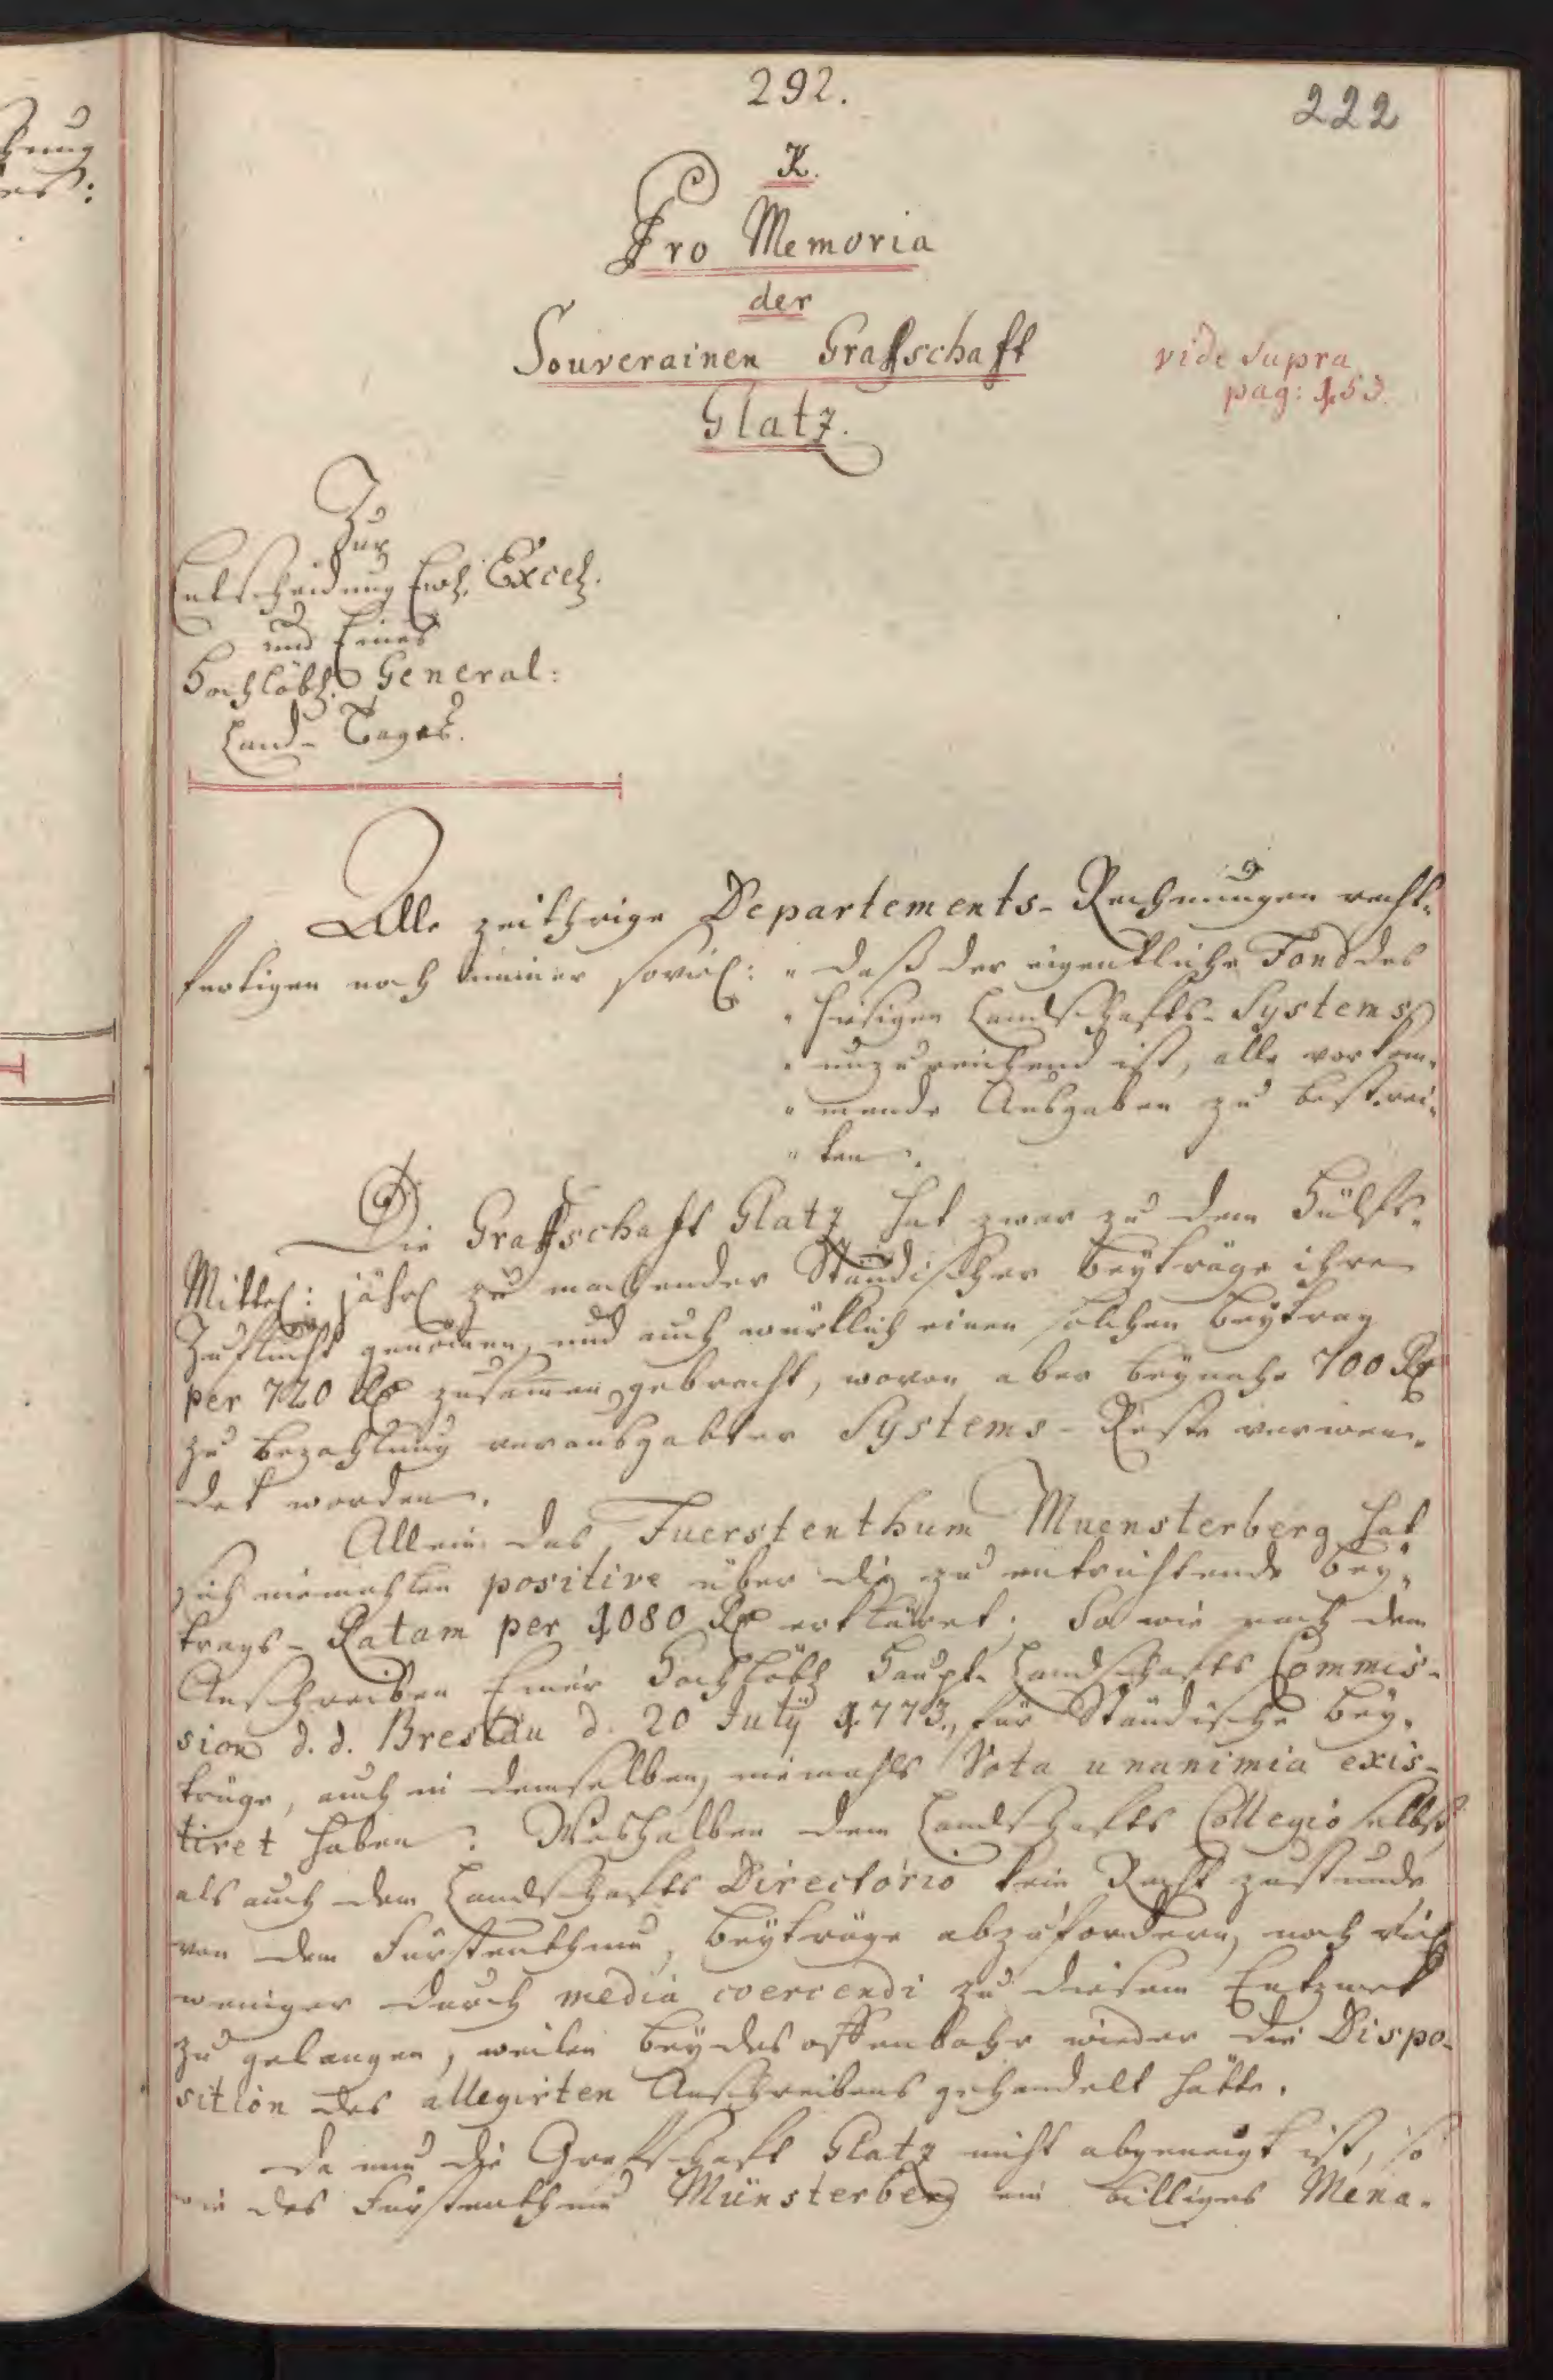 292.
222
K.
Pro Memoria
der
Souverainen Graffschafft
Glatz.
vide supra
pag: 153.
Zur
Entscheidung Ewl. Excell.
und Eines
Hochlöbl. General:
Land-Tages.
Alle zeithrige Departements-Rechnungen recht-
fertigen noch immer soviel: „daß der eigentliche Fond des
„hiesigen Landschaffts-Systems
„unzureichend ist, alle vorkom-
„mende Ausgaben zu bestrei-
„ten.
Die Graffschafft Glatz hat zwar zu dem Hülfs-
Mittel: jährl zu machender Ständischer Beyträge ihre
Zuflucht genom̄en, und auch würklich einen solchen Beytrag
per 720 Rtl zusam̄en gebracht, wovon aber beynahe 700 Rtl
zu Bezahlung verausgabter Systems-Reste verwen-
det worden.
Allein das Fuerstenthum Muensterberg hat
sich niemahlen positive über die zu entrichtende Bey-
trags-Ratam per 1080 Rtl erkläret; So wie nach dem
Anschreiben Einer Hochlöbl Haupt-Landschaffts Commis-
sion d. d. Breslau d. 20 July 1773., für Ständische Bey-
träge, auch in demselben, niemahls Vota unanimia exis-
tiret haben: Weshalben dem Landschaffts Collegio selbst,
als auch dem Landschaffts Directorio kein Recht zustünde
von dem Fürstenthum, Beyträge abzufordern, noch viel
weniger durch media coercendi zu diesem Entzweck
zu gelangen, weilen beydes offenbahr wieder die Dispo-
sition des allegirten Anschreibens gehandelt hätte.
Da nun die Graffschafft Glatz nicht abgeneigt ist, so
wie das Fürstenthum Münsterberg ein billiges Mena-